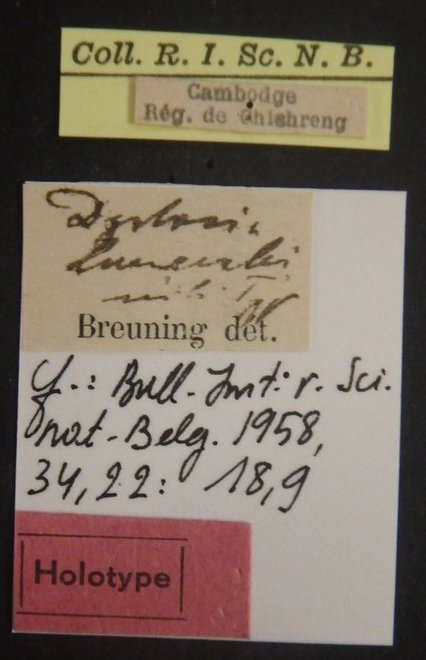 Coll. R. I. Sc. N. B.
Cambodge
Rég. de Chlehreng
Breuning det.
cf.: Bull. Inst. r. Sci.
nat. Belg. 1958,
34, 22: 18, 9
Holotype